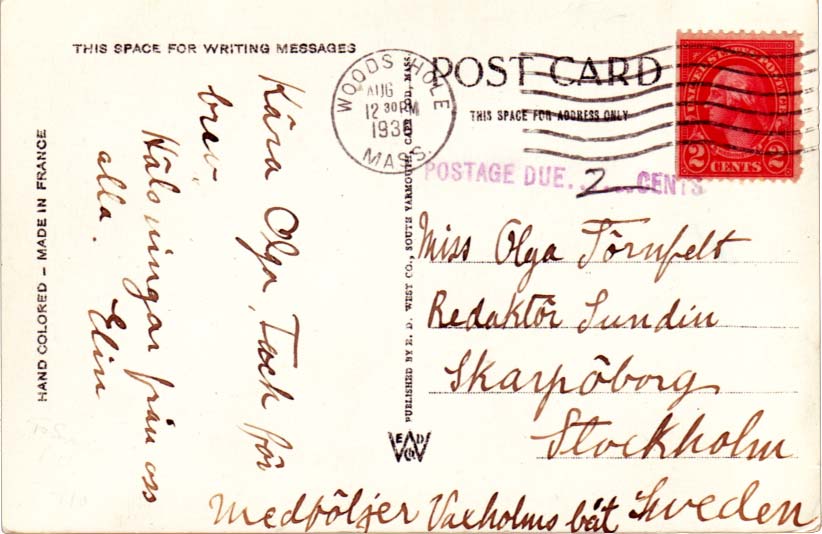 THIS SPACE FOR WRITING MESSAGES
Kära Olga, Tack för
brev,
Hälsningar från oss
alla.
Elin
HAND COLORED - MADE IN FRANCE
PUBLISHED BY E. D. WEST CO., SOUTH YARMOUTH, CAPE COD, MASS.
WOODS HOLE
AUG
12 30 PM
MASS.
POST CARD
THIS SPACE FOR ADDRESS ONLY
UNITED STATES POSTAGE
2 CENTS 2
POSTAGE DUE......2......CENTS
Miss Olga Törnfelt
Redaktör Sundin
Skarpöborg
Stockholm
Sweden
medföljer Vaxholms båt
E D
W
Co